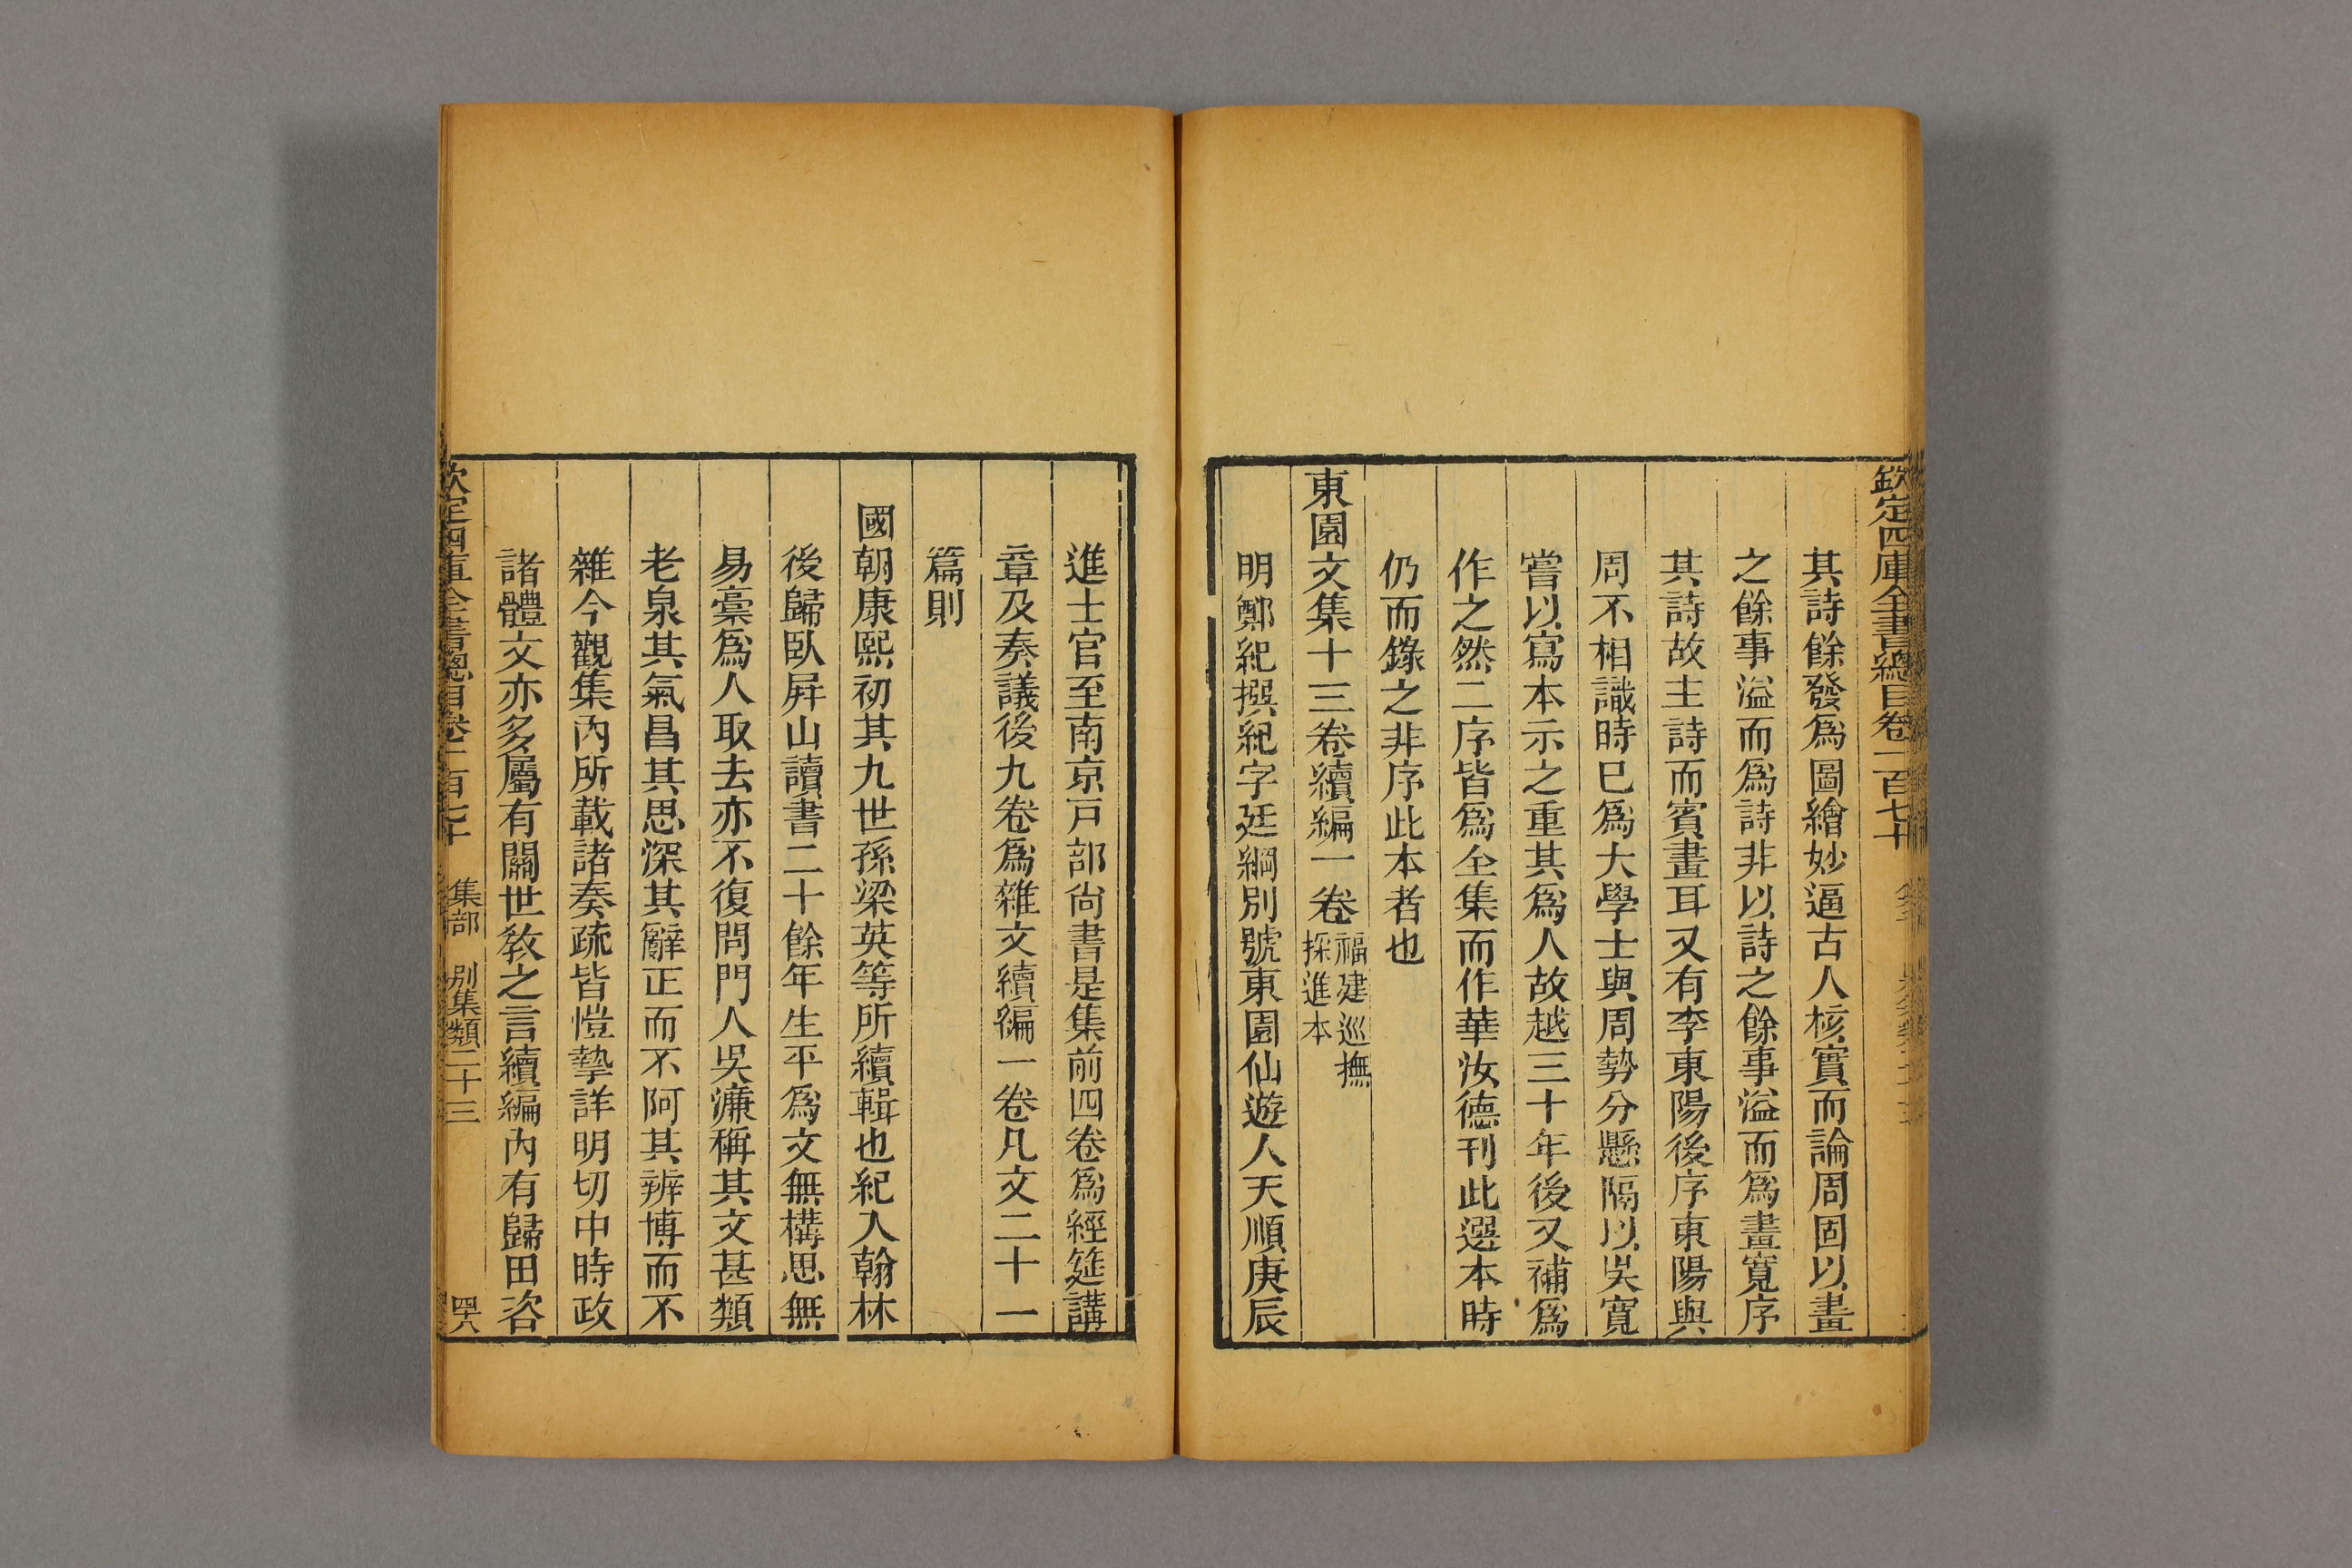 欽定四庫全書總目卷一百七十
其詩餘發爲圖繪妙逼古人核實而論周固以畫
之餘事溢而爲詩非以詩之餘事溢而爲畫寬序
其詩故主詩而賓畫耳又有李東陽後序東陽與
周不相識時已爲大學士與周勢分懸隔以吳寬
嘗以寫本示之重其爲人故越三十年後又補爲
作之然二序皆爲全集而作華汝德刊此選本時
仍而錄之非序此本者也
東園文集十三卷續編一卷福建巡撫
採進本
明鄭紀撰紀字廷綱別號東園仙遊人天順庚辰
進士官至南京戸部尙書是集前四卷爲經筵講
章及奏議後九卷爲雜文續編一卷凡文二十一
篇則
國朝康熙初其九世孫梁英等所續輯也紀入翰林
後歸臥屛山讀書二十餘年生平爲文無構思無
易稾爲人取去亦不復問門人吳濂稱其文甚類
老泉其氣昌其思深其辭正而不阿其辨博而不
雜今觀集內所載諸奏疏皆愷摯詳明切中時政
諸體文亦多屬有關世敎之言續編內有歸田咨
欽定四庫全書總目卷一百七十 集部 別集類二十三 四六